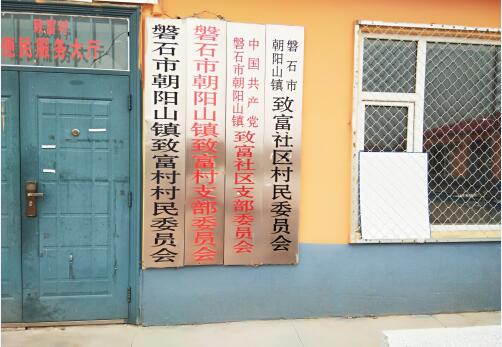 致富村
便民服务大厅
磐石市朝阳山镇致富村村民委员会
磐石市朝阳山镇致富村支部委员会
中国共产党
磐石市朝阳山镇
致富社区支部委员会
磐石市
朝阳山镇
致富社区村民委员会